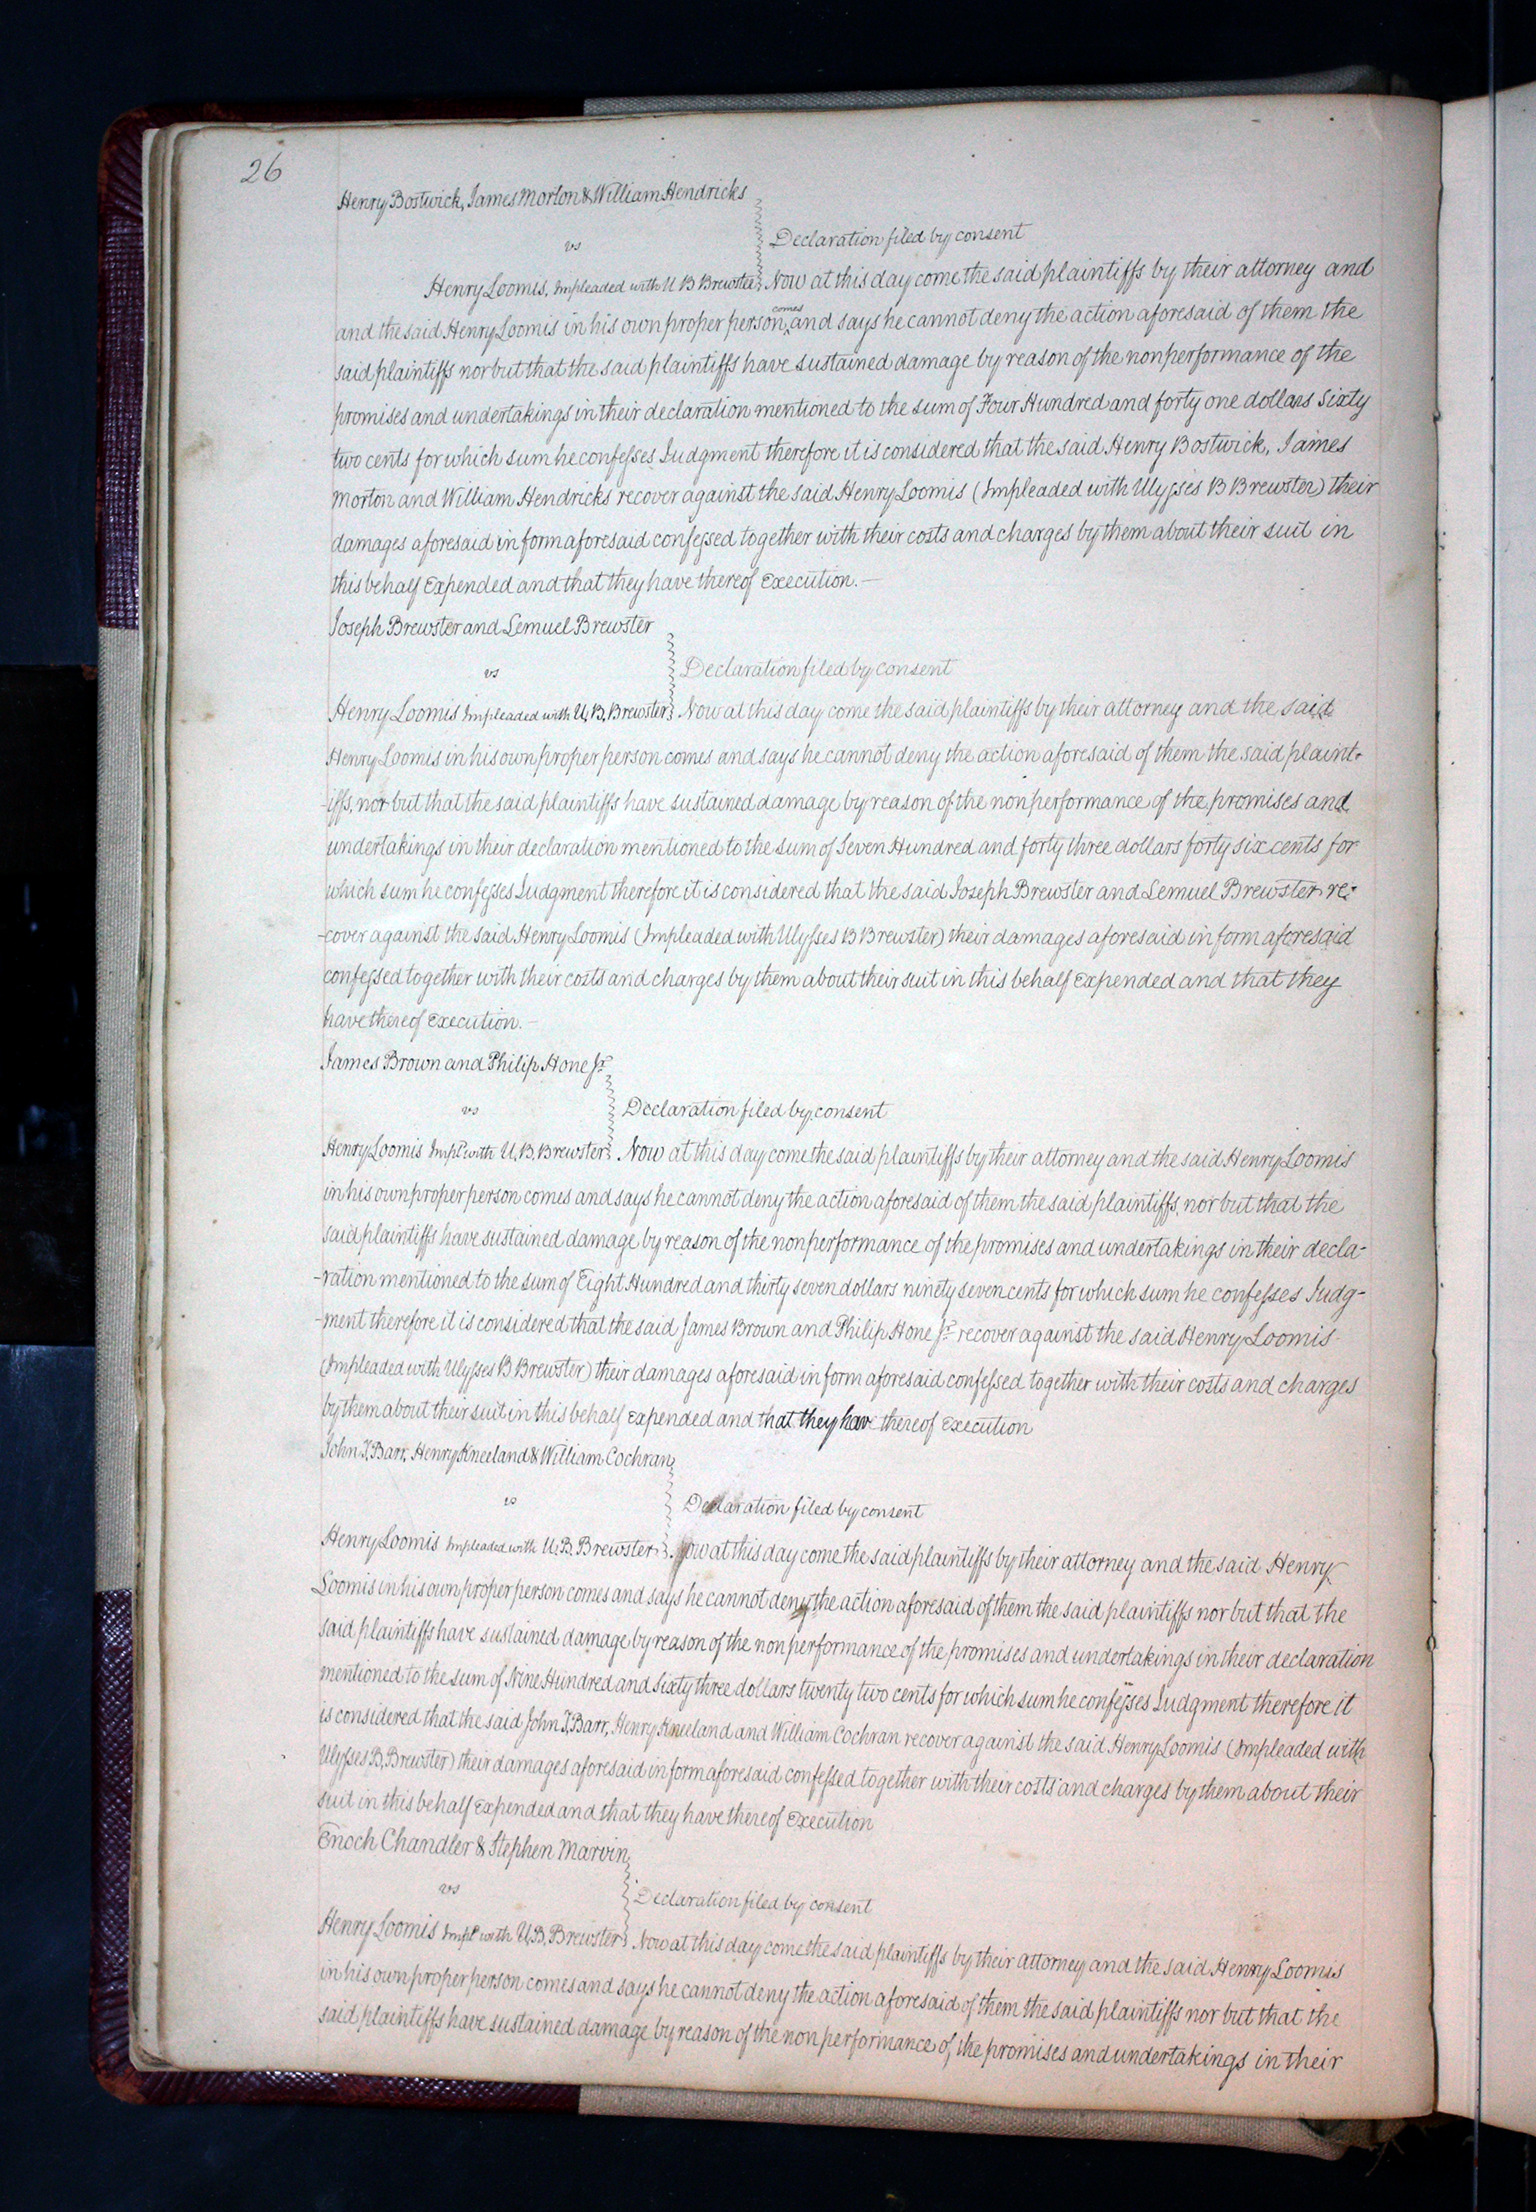 26
Henry Bostwick, James Morton & William Hendricks
vs
Declaration filed by consent
Henry Loomis, Impleaded with U B Brewster Now at this day come the said plaintiffs by their attorney and
and the said Henry Loomis in his own proper person, comes and says he cannot deny the action aforesaid of them the
said plaintiffs nor but that the said plaintiffs have sustained damage by reason of the nonperformance of the
promises and undertakings in their declaration mentioned to the sum of Four Hundred and forty one dollars Sixty
two cents for which sum he confesses Judgment therefore it is considered that the said Henry Bostwick, James
Morton and William Hendricks recover against the said Henry Loomis (Impleaded with Ulysses B Brewster) their
damages aforesaid in form aforesaid confessed together with their costs and charges by them about their suit in
this behalf Expended and that they have thereof Execution.—
Joseph Brewster and Lemuel Brewster
vs
Declaration filed by consent
Henry Loomis Impleaded with U, B, Brewster Now at this day come the said plaintiffs by their attorney and the said
Henry Loomis in his own proper person comes and says he cannot deny the action aforesaid of them the said plaint-
-iffs, nor but that the said plaintiffs have sustained damage by reason of the nonperformance of the promises and
undertakings in their declaration mentioned to the sum of Seven Hundred and forty three dollars forty six cents for
which sum he confesses Judgment therefore it is considered that the said Joseph Brewster and Lemuel Brewster re-
-cover against the said Henry Loomis (Impleaded with Ulysses B Brewster) their damages aforesaid in form aforesaid
confessed together with their costs and charges by them about their suit in this behalf Expended and that they
have thereof Execution.—
James Brown and Philip Hone Jr
vs
Declaration filed by consent
Henry Loomis Impd with U, B, Brewster Now at this day come the said plaintiffs by their attorney and the said Henry Loomis
in his own proper person comes and says he cannot deny the action aforesaid of them the said plaintiffs, nor but that the
said plaintiffs have sustained damage by reason of the nonperformance of the promises and undertakings in their decla-
-ration mentioned to the sum of Eight Hundred and thirty seven dollars ninety seven cents for which sum he confesses Judg-
-ment therefore it is considered that the said James Brown and Philip Hone Jr recover against the said Henry Loomis
(Impleaded with Ulysses B Brewster) their damages aforesaid in form aforesaid confessed together with their costs and charges
by them about their suit in this behalf Expended and that they have thereof Execution
John T, Barr, Henry Kneeland & William Cochran
vs
Declaration filed by consent
Henry Loomis Impleaded with U, B, Brewster Now at this day come the said plaintiffs by their attorney and the said Henry
Loomis in his own proper person comes and says he cannot deny the action aforesaid of them the said plaintiffs nor but that the
said plaintiffs have sustained damage by reason of the nonperformance of the promises and undertakings in their declaration
mentioned to the sum of Nine Hundred and Sixty three dollars twenty two cents for which sum he confesses Judgment therefore it
is considered that the said John T, Barr, Henry Kneeland and William Cochran recover against the said Henry Loomis (Impleaded with
Ulysses B, Brewster) their damages aforesaid in form aforesaid confessed together with their costs and charges by them about their
suit in this behalf Expended and that they have thereof Execution
Enoch Chandler & Stephen Marvin
vs
Declaration filed by consent
Henry Loomis Impd with U, B, Brewster Now at this day come the said plaintiffs by their attorney and the said Henry Loomis
in his own proper person comes and says he cannot deny the action aforesaid of them the said plaintiffs nor but that the
said plaintiffs have sustained damage by reason of the non performance of the promises and undertakings in their